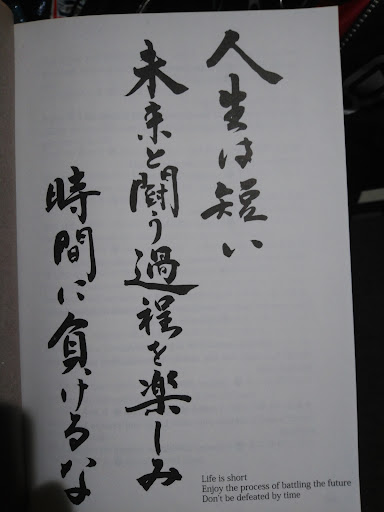 人生は短い
未来と闘う過程を楽しみ
時間に負けるな
Life is short
Enjoy the process of battling the future
Don't be defeated by time